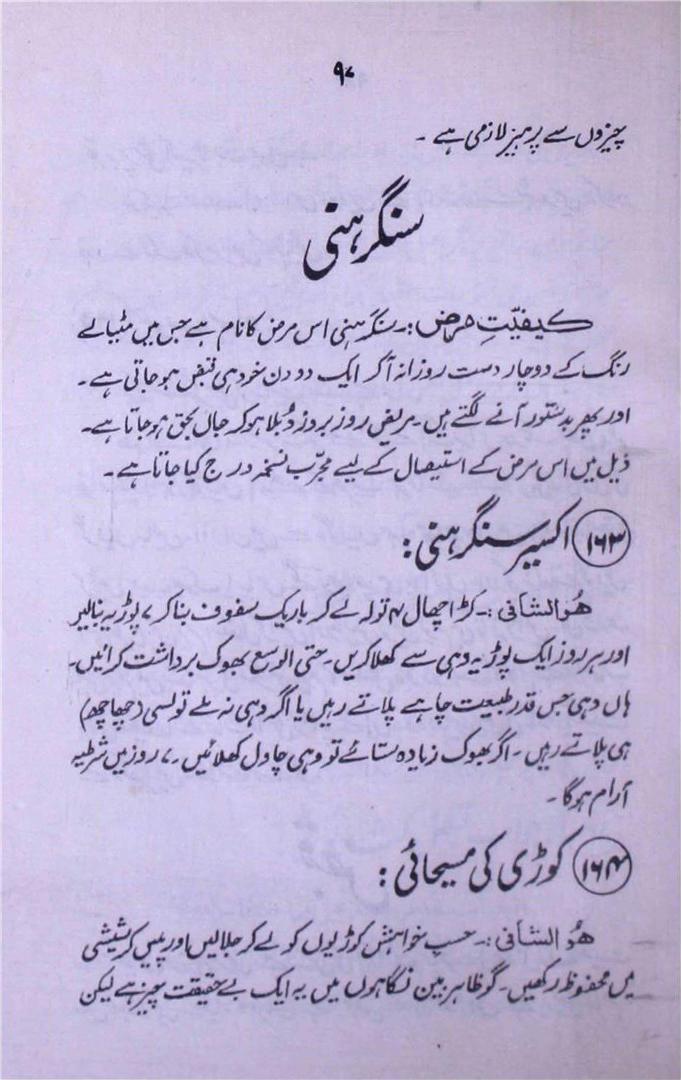 ۹۷
چیزوں سے پرہیز لازمی ہے ۔
سنگرہنی
کیفیّتِ مرض :۔ سنگرہنی اس مرض کا نام ہے جس میں مٹیالے
رنگ کے دو چار دست روزانہ آکر ایک دو دن خود ہی قبض ہو جاتی ہے ۔
اور پھر بدستور آنے لگتے ہیں ۔ مریض روز بروز دُبلا ہو کر جاں بحق ہو جاتا ہے ۔
ذیل میں اس مرض کے استیصال کے لیے مجرّب نسخہ درج کیا جاتا ہے ۔
۱۶۳ اکسیر سنگرہنی :
ھُوالشافی :۔ کڑا چھال ۴ تولہ لے کر باریک سفوف بنا کر ۷ پوڑیہ بنالیں
اور ہر روز ایک پوڑیہ دہی سے کھلا کریں ۔ حتی الوسع بھوک برداشت کرائیں ۔
ہاں دہی جس قدر طبیعت چاہے پلاتے رہیں یا اگر دہی نہ ملے تو لسی (چھاچھ)
ہی پلاتے رہیں ۔ اگر بھوک زیادہ ستائے تو وہی چاول کھلائیں ۔ ۷ روز میں شرطیہ
آرام ہوگا ۔
۱۶۴ کوڑی کی مسیحائی :
ھُوالشافی :۔ حسبِ خواہش کوڑیوں کو لے کر جلالیں اور پیس کر شیشی
میں محفوظ رکھیں ۔ گو ظاہر بین نگاہوں میں یہ ایک بے حقیقت چیز ہے لیکن